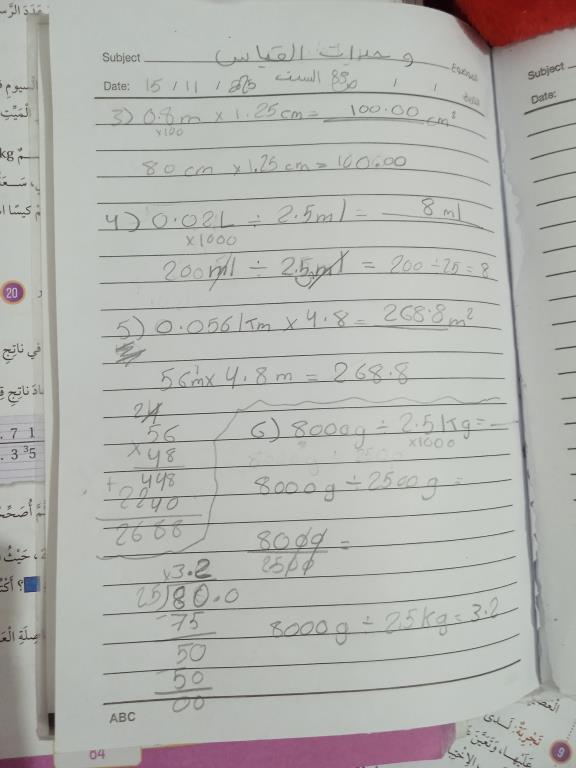 Subject وحدات القياس الموضوع
Date: 15 / 11 / السبت / / التاريخ
3) 0.8m x 1.25cm = 100.00 cm²
x100
80cm x 1.25cm = 100.00
4) 0.02L ÷ 2.5ml = 8 ml
x1000
200ml ÷ 2.5ml = 200 ÷ 25 = 8
5) 0.056 km x 4.8 = 268.8 m²
56m x 4.8m = 268.8
56
x 48
448
+ 2240
2688
6) 8000g ÷ 2.5kg =
x1000
8000g ÷ 2500g =
8000
2500 =
3.2
25 80.0
-75
50
-50
00
8000g ÷ 2.5kg = 3.2
ABC
Subject
Date:
kg
20
في ناتج
. 7 1
. 3 ³5
64
9